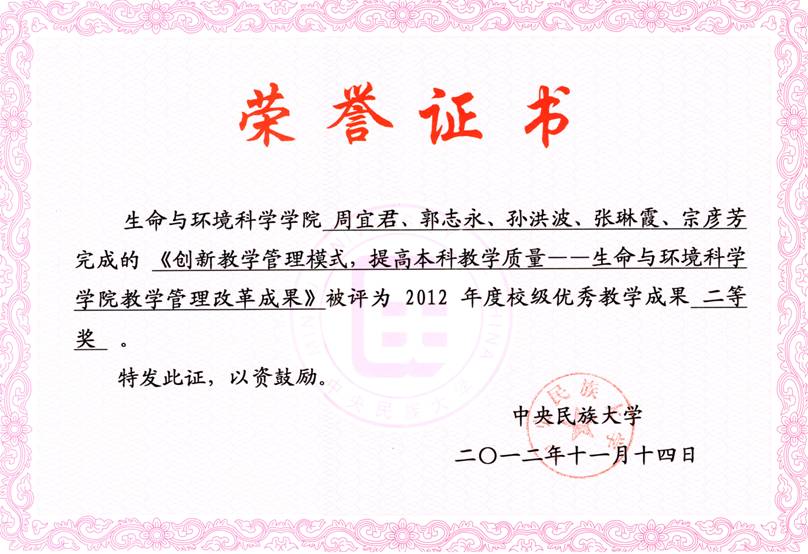 荣誉证书
生命与环境科学学院 周宜君、郭志永、孙洪波、张琳霞、宗彦芳
完成的 《创新教学管理模式，提高本科教学质量——生命与环境科学
学院教学管理改革成果》被评为 2012 年度校级优秀教学成果 二等
奖 。
特发此证，以资鼓励。
中央民族大学
二〇一二年十一月十四日